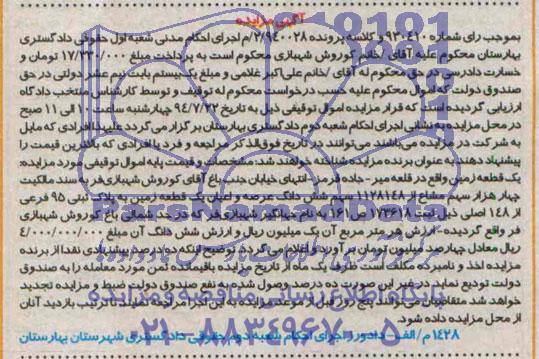 آگهی مزایده
بموجب رای شماره ۹۳۰۴۱۰ و کلاسه پرونده ۲/۹۴۰۰۲۸/م اجرای احکام مدنی شعبه اول حقوقی دادگستری
بهارستان محکوم علیه آقای/خانم کوروش شهبازی محکوم است به پرداخت مبلغ ۱۷/۳۳۰/۰۰۰ تومان و
خسارت دادرسی در حق محکوم له آقای/خانم علی اکبر غلامی و مبلغ یک بیستم بابت نیم عشر دولتی در حق
صندوق دولت که اموال محکوم علیه حسب درخواست محکوم له توقیف و توسط کارشناس منتخب دادگاه
ارزیابی گردیده است که قرار مزایده اموال توقیفی ذیل به تاریخ ۹۴/۷/۲۲ چهارشنبه ساعت ۱۰ الی ۱۱ صبح
در محل مزایده به نشانی اجرای احکام شعبه دوم دادگستری بهارستان برگزار می گردد علیهذا افرادی که مایل
به شرکت در مزایده می باشند می توانند در تاریخ فوق الذکر مراجعه و فرد یا افرادی که بالاترین قیمت را
پیشنهاد دهند به عنوان برنده مزایده شناخته خواهند شد. مشخصات و قیمت پایه اموال توقیفی مورد مزایده:
یک قطعه زمین واقع در قلعه میر- جاده فرمز- انتهای خیابان جنب باغ آقای کوروش شهبازی فر- سند مالکیت
چهار هزار سهم مشاع از ۱۱۲۸۱۴۸ سهم شش دانگ عرصه و اعیان یک قطعه زمین به پلاک ثبتی ۹۵ فرعی
از ۱۴۸ اصلی ذیل ثبت ۱۷۳۶۱۸ ص ۱۶۱ به نام جهانگیر شهبازی فر که در حد شمالی باغ کوروش شهبازی
فر واقع گردیده - ارزش هر متر مربع آن یک میلیون ریال و ارزش شش دانگ آن مبلغ ۴/۰۰۰/۰۰۰/۰۰۰
ریال معادل چهارصد میلیون تومان برآورد و اعلام می گردد. توضیح اینکه ده درصد پیشنهادی نقدا از برنده
مزایده اخذ و نامبرده مکلف است ظرف یک ماه از تاریخ مزایده باقیمانده ثمن مورد معامله را به صندوق
دولت تودیع نماید در غیر این صورت ده درصد وصول شده به نفع صندوق دولت ضبط و مزایده تجدید
خواهد شد متقاضیان می توانند پنج روز قبل از موعد مزایده به این اجرا مراجعه نمایند تا ترتیب بازدید آنان
از محل مزایده داده شود.
۱۴۲۸/م الف- دادورز اجرای احکام شعبه دوم حقوقی دادگستری شهرستان بهارستان
۰۲۱-۸۸۳۴۹۶۷۰-۵